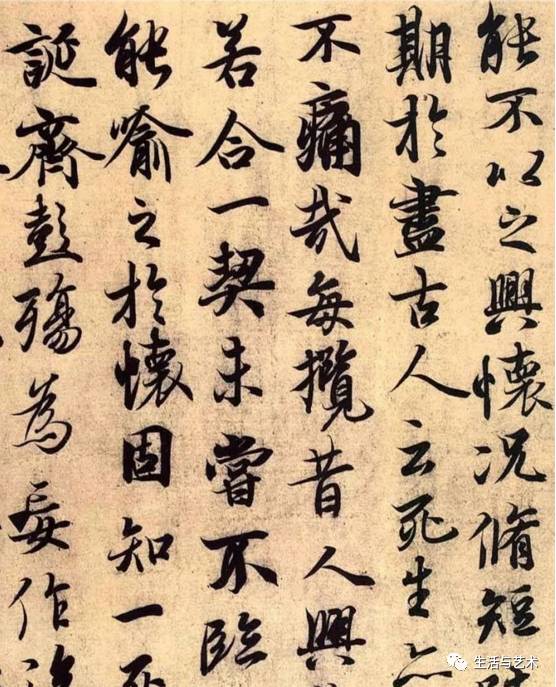 能不以之興懷況脩短
期於盡古人云死生亦
不痛哉每攬昔人興
若合一契未嘗不臨
能喻之於懷固知一死
誕齊彭殤為妄作
生活与艺术